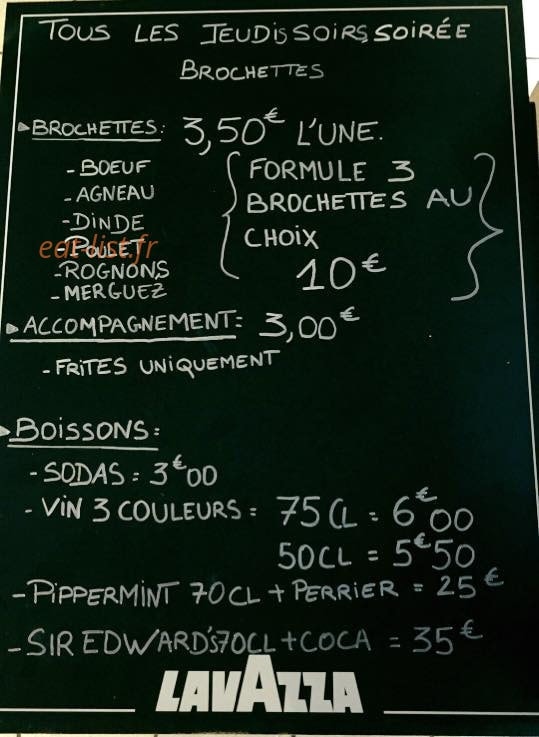 TOUS LES JEUDIS SOIRS SOIRÉE
BROCHETTES
BROCHETTES: 3,50€ L'UNE.
- BOEUF
- AGNEAU
- DINDE
- POULET
- ROGNONS
- MERGUEZ
FORMULE 3
BROCHETTES AU
CHOIX
10€
eat-list.fr
ACCOMPAGNEMENT: 3,00€
- FRITES UNIQUEMENT
BOISSONS:
- SODAS = 3€00
- VIN 3 COULEURS = 75CL = 6€00
50CL = 5€50
- PIPPERMINT 70CL + PERRIER = 25€
- SIR EDWARD'S 70CL + COCA = 35€
LAVAZZA